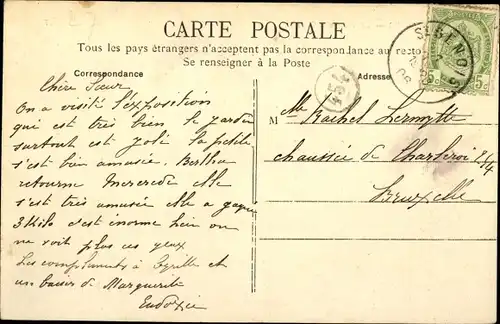 CARTE POSTALE
Tous les pays étrangers n'acceptent pas la correspondance au recto
Se renseigner à la Poste
Correspondance
Adresse
Chère Sœur
On a visité l'exposition
qui est très bien le jardin
surtout est joli la petite
s'est bien amusée. Bertha
retourne Mercredi elle
s'est très amusée elle a gagné
3 Kilo c'est énorme hein on
ne voit plus ces yeux
Les compliments à Cyrille et
un baiser de Marguerite
Eudoxie
M lle Rachel Lermytte
chaussée de Charleroi
Bruxelle